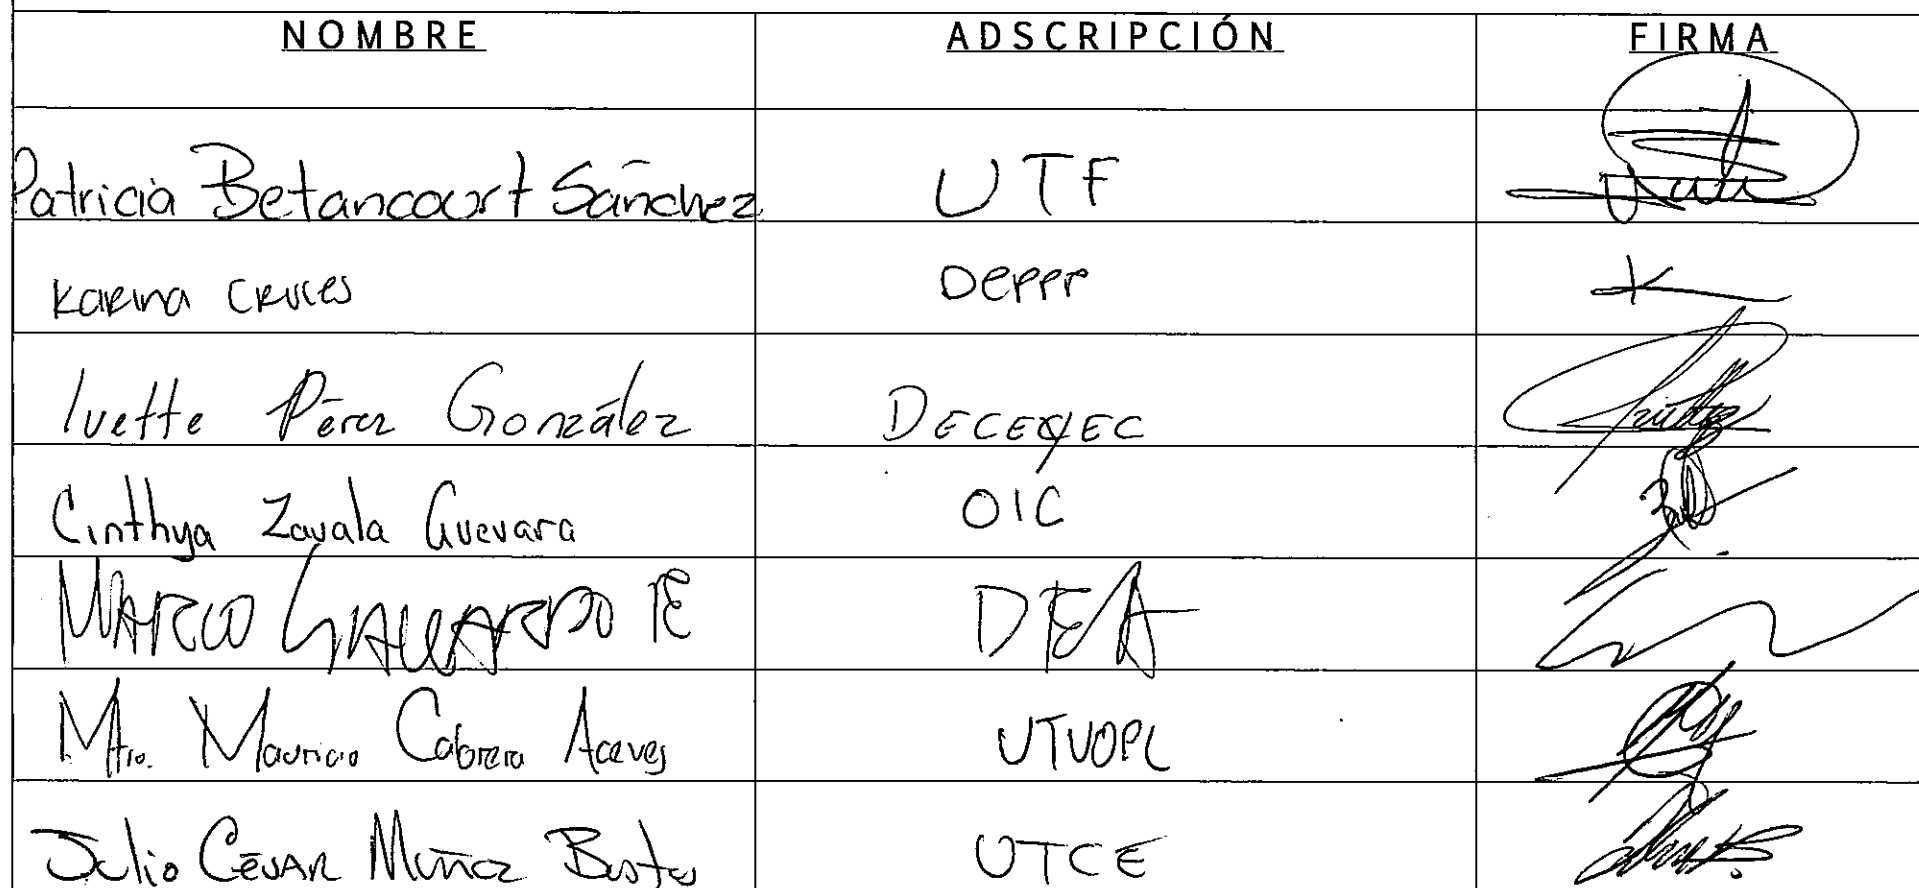 NOMBRE ADSCRIPCIÓN FIRMA
Patricia Betancourt Sánchez UTF
Karina Cruces DEPPP
Ivette Pérez González DECEyEC
Cinthya Zavala Guevara OIC
MARCO GALLARDO DEA
Mtro. Mauricio Cabrera Aceves UTVOPL
Julio CÉSAR Muñoz Bustos UTCE